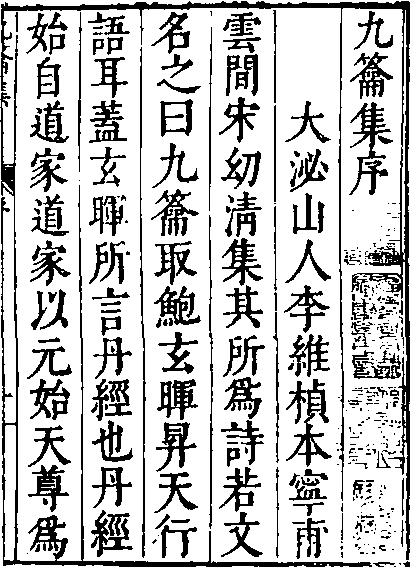 九籥集序
大泌山人李維楨本寧甫
雲間宋幼淸集其所爲詩若文
名之曰九籥取鮑玄暉昇天行
語耳蓋玄暉所言丹經也丹經
始自道家道家以元始天尊爲